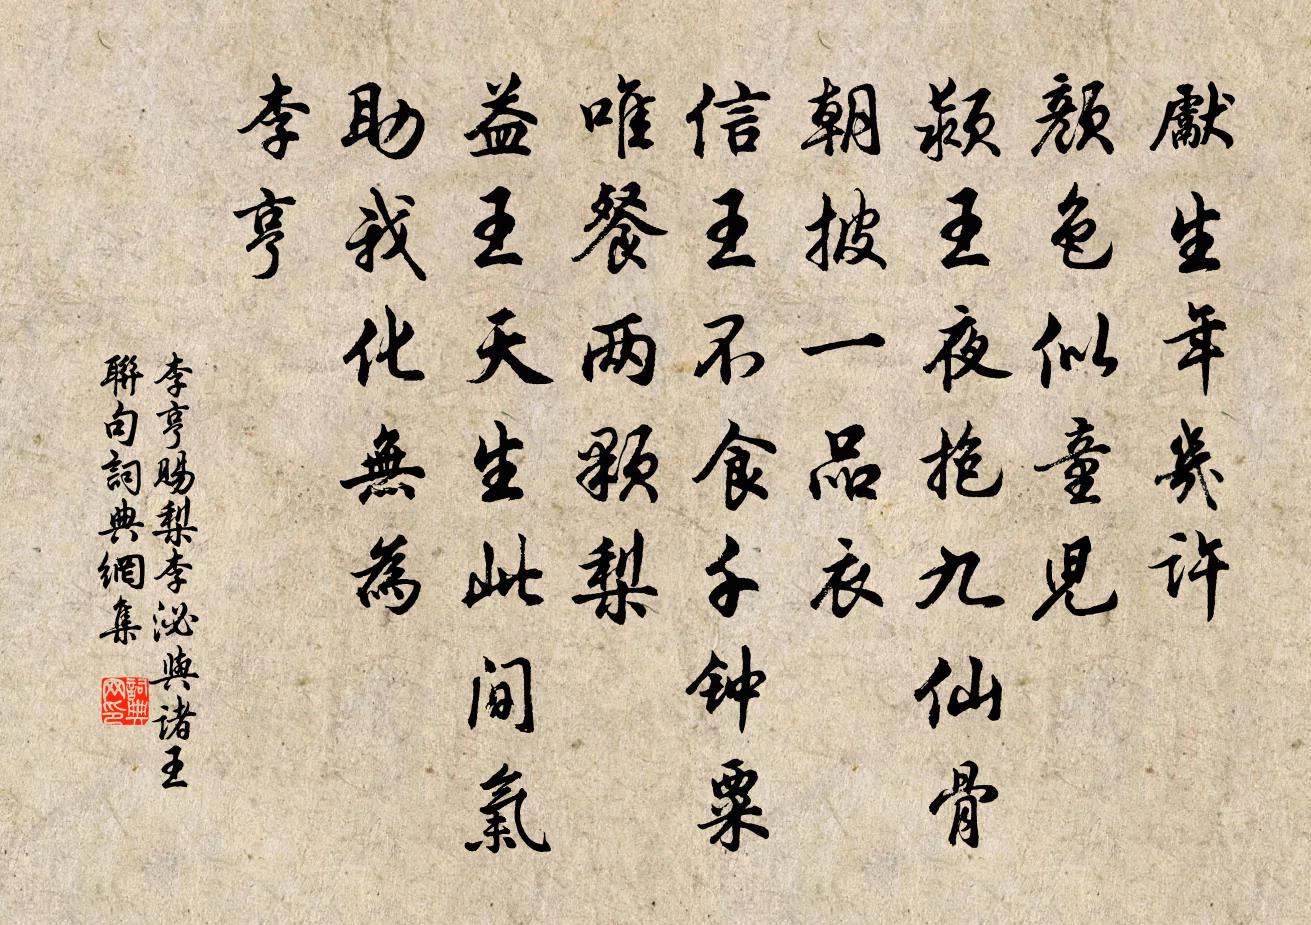 獻生年幾許
顏色似童兒
潁王夜抱九仙骨
朝披一品衣
信王不食千钟粟
唯餐两顆梨
益王天生此间氣
助我化無為
李亨
李亨賜梨李泌與諸王
聯句詞典網集
詞典网印